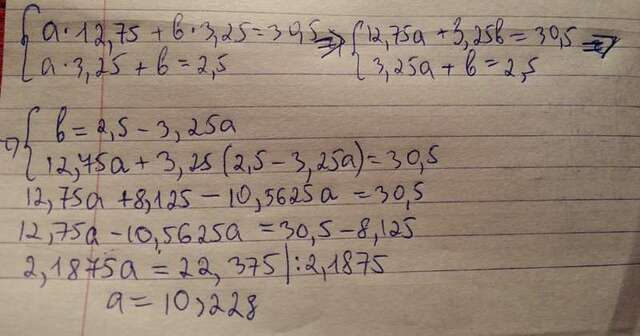 { a·12,75 + b·3,25 = 30,5 ⇒ { 12,75a + 3,25b = 30,5 ⇒
a·3,25 + b = 2,5 3,25a + b = 2,5
⇒ { b = 2,5 - 3,25a
12,75a + 3,25(2,5 - 3,25a) = 30,5
12,75a + 8,125 - 10,5625a = 30,5
12,75a - 10,5625a = 30,5 - 8,125
2,1875a = 22,375 |:2,1875
a = 10,228